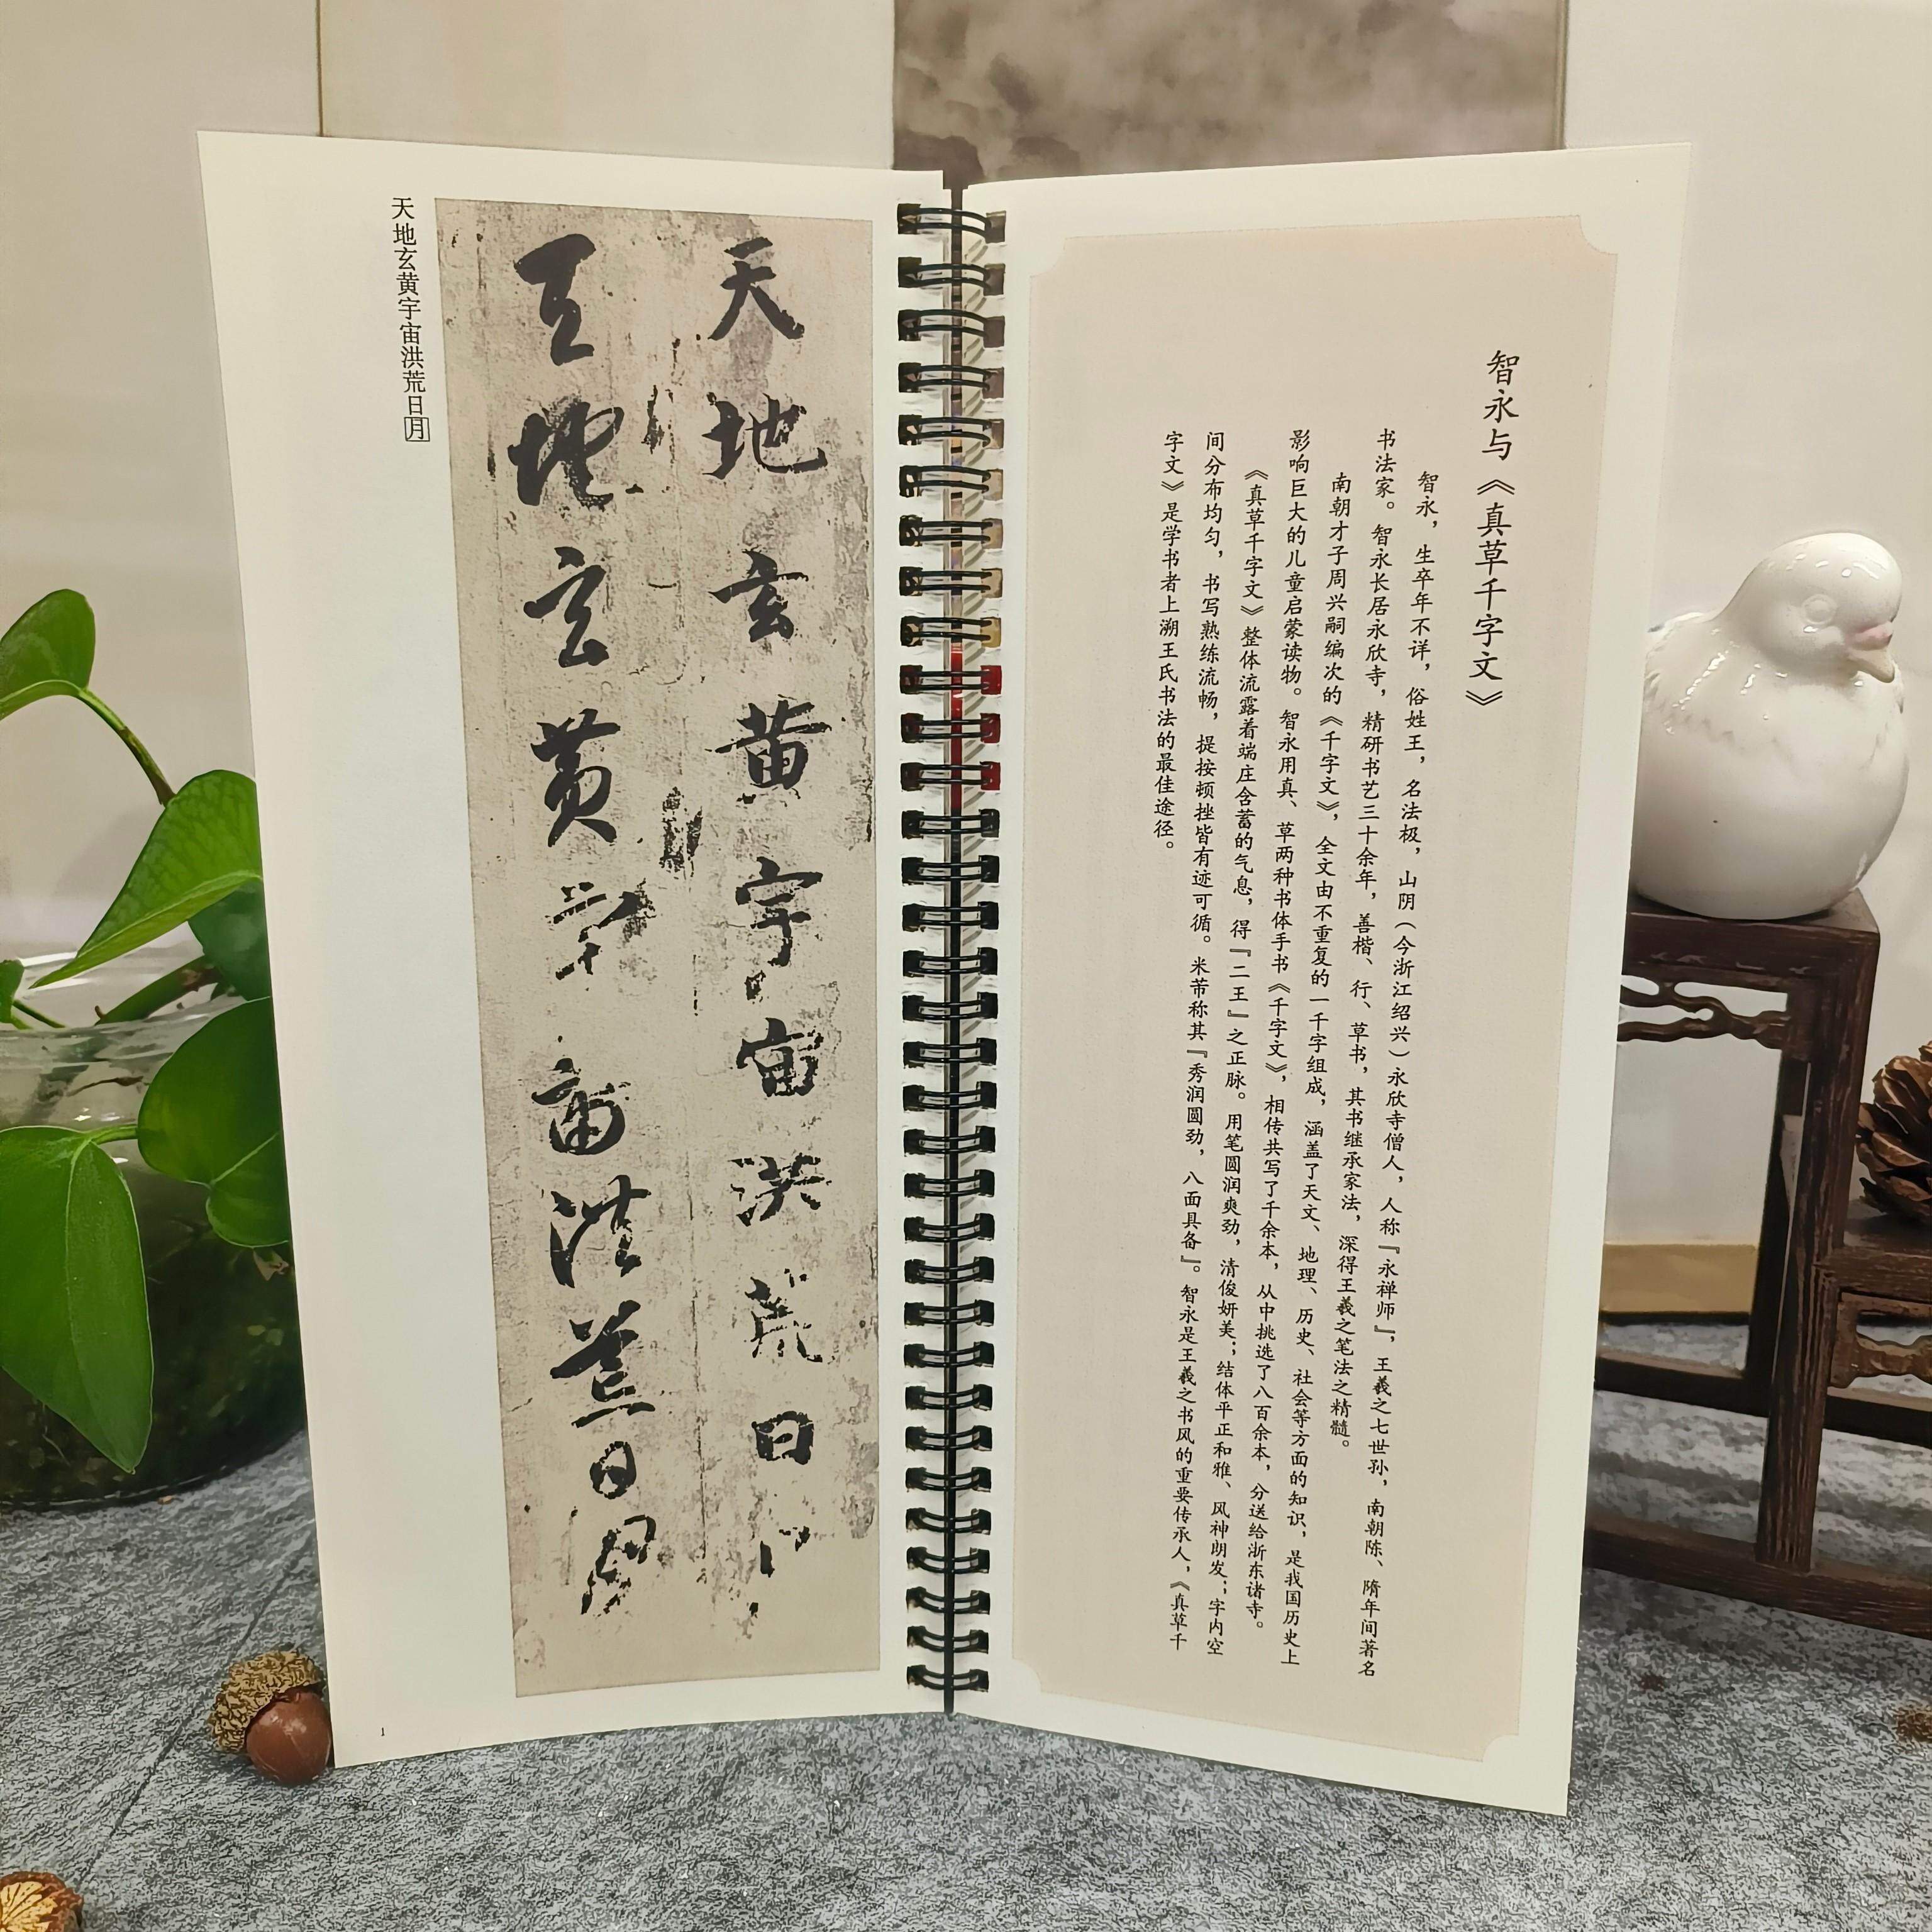 智永与《真草千字文》
智永，生卒年不详，俗姓王，名法极，山阴（今浙江绍兴）永欣寺僧人，人称『永禅师』，王羲之七世孙，南朝陈、隋年间著名
书法家。智永长居永欣寺，精研书艺三十余年，善楷、行、草书，其书继承家法，深得王羲之笔法之精髓。
南朝才子周兴嗣编次的《千字文》，全文由不重复的一千字组成，涵盖了天文、地理、历史、社会等方面的知识，是我国历史上
影响巨大的儿童启蒙读物。智永用真、草两种书体手书《千字文》，相传共写了千余本，从中挑选了八百余本，分送给浙东诸寺。
《真草千字文》整体流露着端庄含蓄的气息，得『二王』之正脉。用笔圆润爽劲，清俊妍美；结体平正和雅、风神朗发；字内空
间分布均匀，书写熟练流畅，提按顿挫皆有迹可循。米芾称其『秀润圆劲，八面具备』。智永是王羲之书风的重要传承人，《真草千
字文》是学书者上溯王氏书法的最佳途径。
天地玄黄宇宙洪荒日
天地玄黄宇宙洪荒日月
天地玄黄宇宙洪荒日月
1